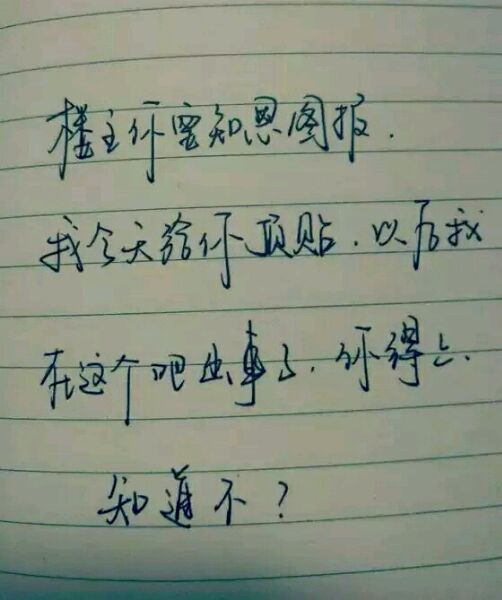 楼主你要知恩图报.
我今天给你顶贴.以后我
在这个吧出事了.你得上.
知道不?